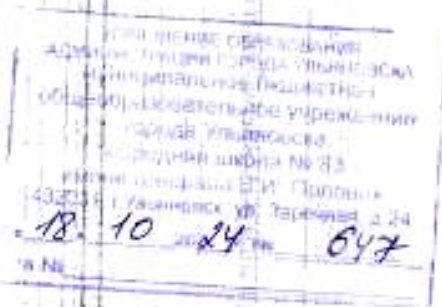 УПРАВЛЕНИЕ ОБРАЗОВАНИЯ
АДМИНИСТРАЦИИ ГОРОДА УЛЬЯНОВСКА
муниципальное бюджетное
общеобразовательное учреждение
города Ульяновска
школа № 83
имени генерала
г. Ульяновск, ул. Заречная, д. 24
18. 10 2024 № 647
на №